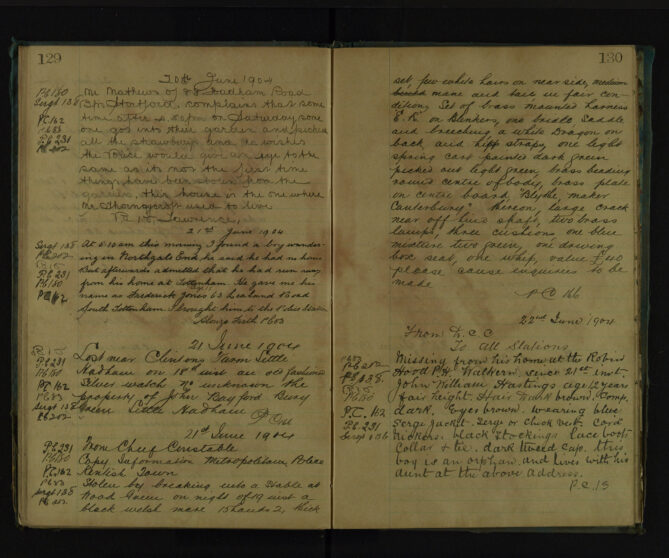 129
20th June 1904
Pc 180
Sergt 138
PC 162
Pc 83
Pc 231
Pc 202
Mr Mathews of Hadham Road
Bps Stortford, complains that some
time after 4.30pm on Saturday, some
one got into their garden and picked
all the strawberrys and he wishes
the Police would give an eye to the
same as its not the first time
things have been stolen from the
garden, this house is the one where
Mr Thornycroft used to live
Lawrence,
21st June 1904
Sergt 138
Pc 231
Pc 180
PC 162
At 3.10 am this morning I found a boy wander-
ing in Northgate End he said he had no home
But afterwards admitted that he had run away
from his home at Tottenham. He gave me his
name as Frederick Jones 63 Road
South Tottenham. I brought him to the Police Station
Pc 83
21 June 1904
Pc 231
Pc 180
PC 162
Pc 83
Sergt 138
Pc 202
Lost near Clintons Farm Little
Hadham on 18th inst an old fashioned
Silver watch No unknown the
property of John Bayford Bury
Green Little Hadham
21st June 1904
Pc 231
Pc 180
PC 162
Pc 83
Sergt 138
Pc 202
From Chief Constable
Copy Information Metropolitan Police
Kentish Town
Stolen by breaking into a stable at
Wood Green on night of 19 inst a
black welsh mare 15 hands 2, thick
130
set few white hairs on near side, medium
mane and tail in fair con-
dition, Set of brass mounted harness
E.R on blinkers, one bridle saddle
and breeching a white Dragon on
back and hip straps, one light
spring cart painted dark green
picked out light green, brass beading
round centre of body, brass plate
on centre board, "Blythe, maker
Canterbury" thereon, large crack
near off shaft, two brass
lamps, three cushions one blue
mixture two green, one driving
box seat, one whip, value
please cause enquiries to be
made
PC 166
22nd June 1904
From D.C.C
To All Stations
Pc 83
Pc 202
Pc 138
Pc 180
PC. 162
Pc 231
Sergt
Missing from his home at the Robin
Hood P.H. Walkern, since 21st inst.
John William Hastings age 12 years
fair height. Hair dark brown, Comp.
dark. Eyes brown. wearing blue
Serge Jacket. Serge or check vest. Cord
knickers. black stockings lace boots
Collar & tie. dark tweed cap. this
boy is an orphan and lives with his
aunt at the above address.
P.C. 15